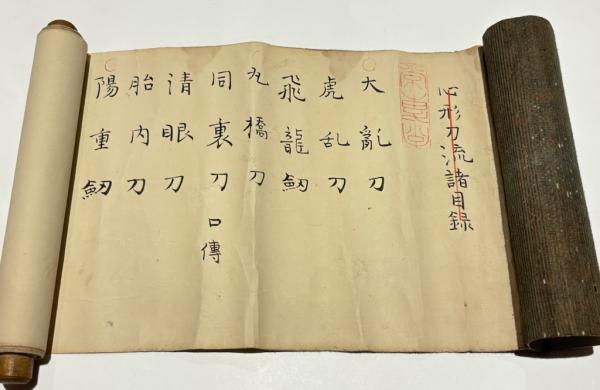 心形刀流諸目録
大亂刀
虎乱刀
飛龍劔
九橋刀
同裏刀口傳
清眼刀
胎内刀
陽重劔